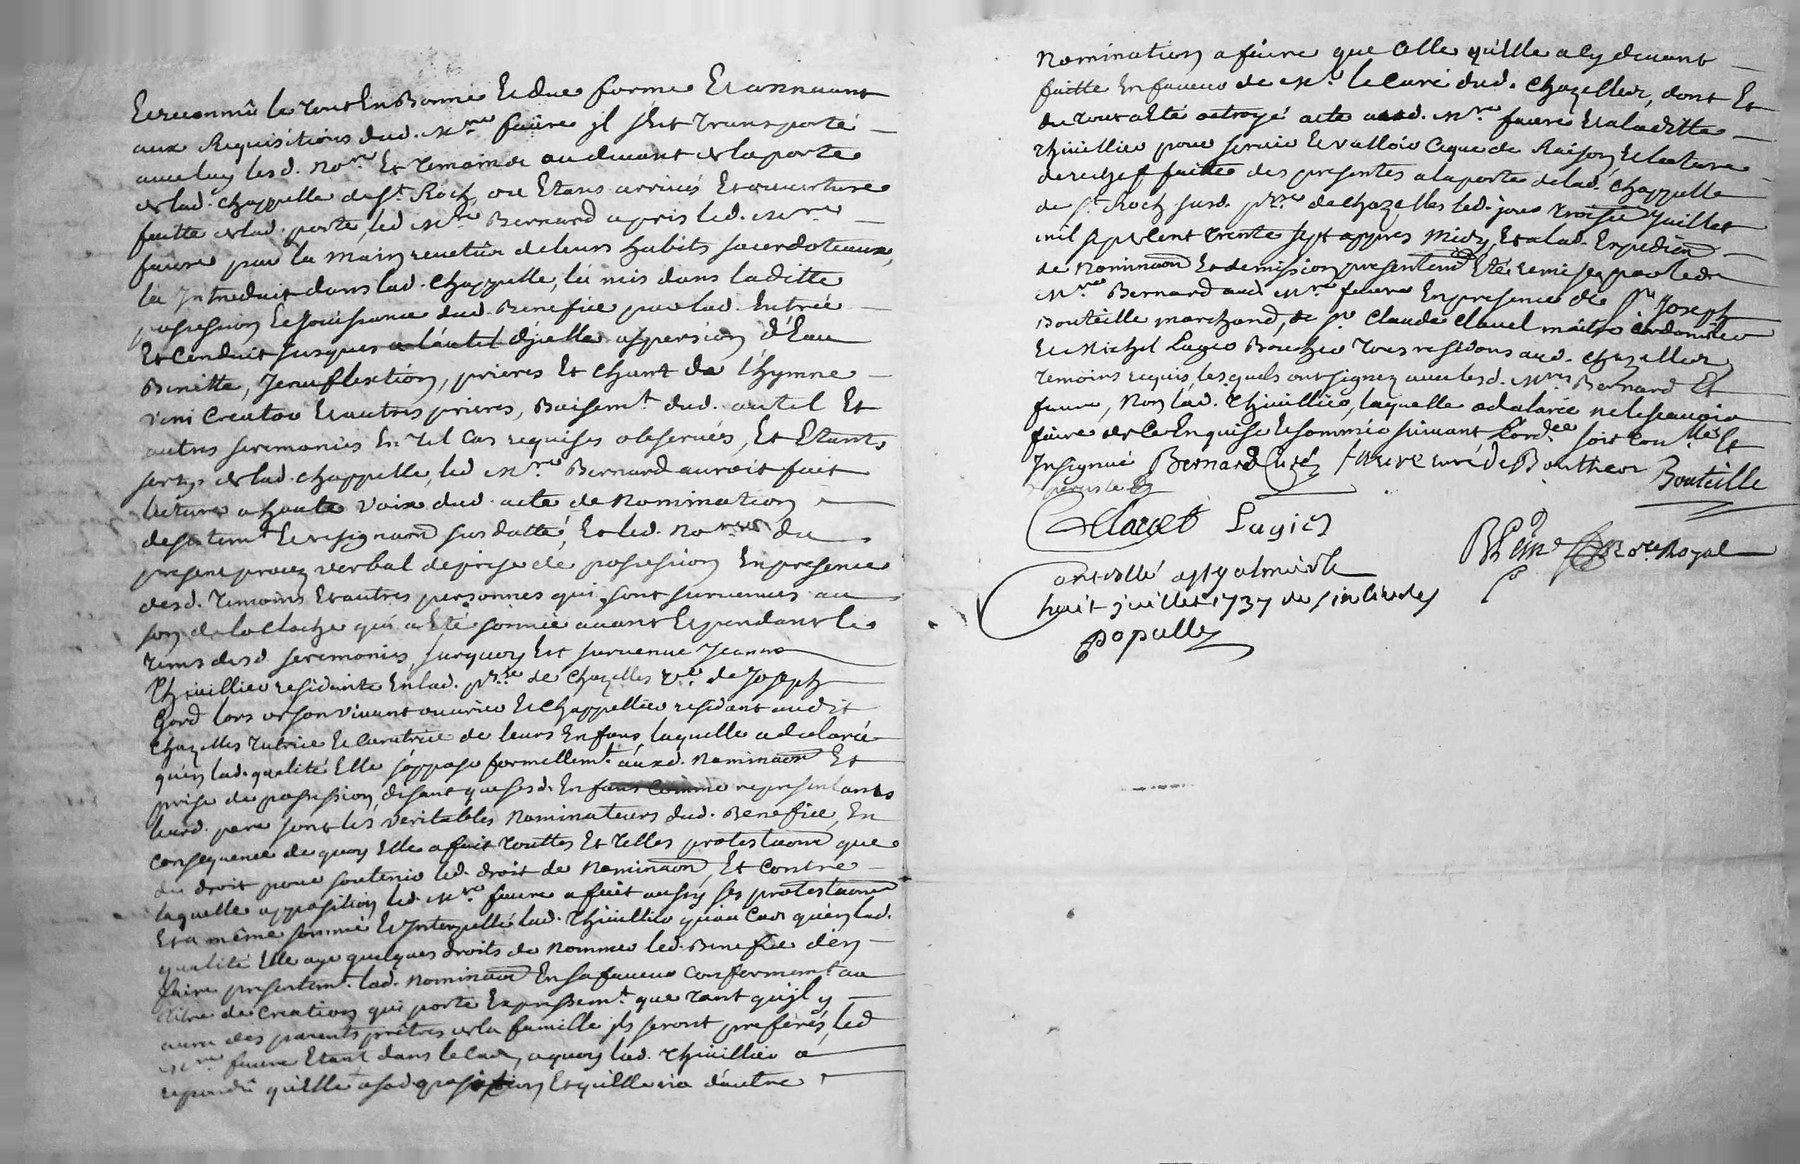 Et reconnû le tout En Bonne Et due forme Et annuant
aux Requisitions dud. Mre faure jl s'est transporté
avec luy lesd. Nore Et temoins au devant de la porte
de lad. chappelle de St. Roch, ou Etans arrivés Et ouverture
faitte de lad. porte, led. Mre Bernard a pris led. Mre
faure par la main revetûs de leurs habits sacerdoteaux,
la Introduit dans lad. chappelle, la mis dans laditte
possession Et Jouissance dud. Benefice par lad. Entrée
Et Conduit jusques a l'autel d'jcelle aspersion d'Eau
Benitte, Jenuflextion, prieres Et chant de l'hymne
Veni Creator Et autres prieres, Baisemt. dud. autel Et
autres seremonies En tel Cas requises observées, Et Etants
sortis de lad. chappelle, led. Mre Bernard auroit fait
lecture a haute voix dud. acte de Nomination
desistemt. Et resignaon sus datté, Et led. Nore du
present procez verbal de prise de possession En presence
desd. temoins Et autres personnes qui sont survenues au
son de la cloche qui a Eté sonnée avant Et pendant le
tems desd. seremonies, surquoy Est survenue Jeanne
Thivillier residante En lad. prsse de Chazelles ve. de Joseph
Gord lors de son vivant ouvrier Et chappellier residant audit
Chazelles tutrice Et Curatrice de leurs Enfans laquelle a declaré
qu'en lad. qualité Elle s'oppose formellemt. auxd. Nominaon Et
prise de possession, disant que sesd. Enfans comme representants
leurd. pere sont les veritables Nominateurs dud. Benefice, En
consequence de quoy Elle a fait touttes Et telles protestaons que
de droit pour soutenir led. droit de Nominaon, Et contre
laquelle opposition led. Mre faure a fait aussy ses protestaons
Et a même sommé Et Interpellé lad. Thivillier qu'au Cas qu'en lad.
qualité Elle aye quelques droits de Nommer led. Benefice d'en
faire presentemt. lad. Nominaon En sa faveur conformemt. au
titre de Creation qui porte Expressemt. que tant qu'jl y
aura des parents prêtres de la famille jls seront preferés, led.
Mre faure Etant dans le Cas, a quoy lad. Thivillier a
repondû qu'Elle a sad. oposition Et qu'Elle n'a d'autre
Nomination a faire que Celle qu'Elle a Cy devant
faitte En faveur de Mr. le Curé dud. Chazelles, dont Et
du tout a Eté octroyé acte aud. Mre faure Et a laditte
Thivillier pour servir Et valloir Ce que de Raison, Et lecture
derechef faitte des presentes a la porte de lad. Chappelle
de St. Roch susd. prsse de Chazelles led. jour troisie. Juillet
mil sept Cent trente sept appres Midy, Et a lad. Expedion
de Nominaon Et demission presentem. Eté remise par led.
Mre Bernard aud. Mre faure En presence de Sr. Joseph
Bouteille marchand, de Sr. Claude Clavel maître Cordonnier
Et Michel Lagier Boucher tous residans aud. Chazelles
temoins requis, lesquels ont signez avec lesd. Mres Bernard Et
faure, Non lad. Thivillier, laquelle a declarée ne le sçavoir
faire de Ce Enquise Et sommée suivant l'ordce soit Conllé Et
Insignué Bernard Curé faure curé de Bontheon Bouteille
Clavel Lagier
Nore Royal
Controllé a St galmier le
huit juillet 1737
populle